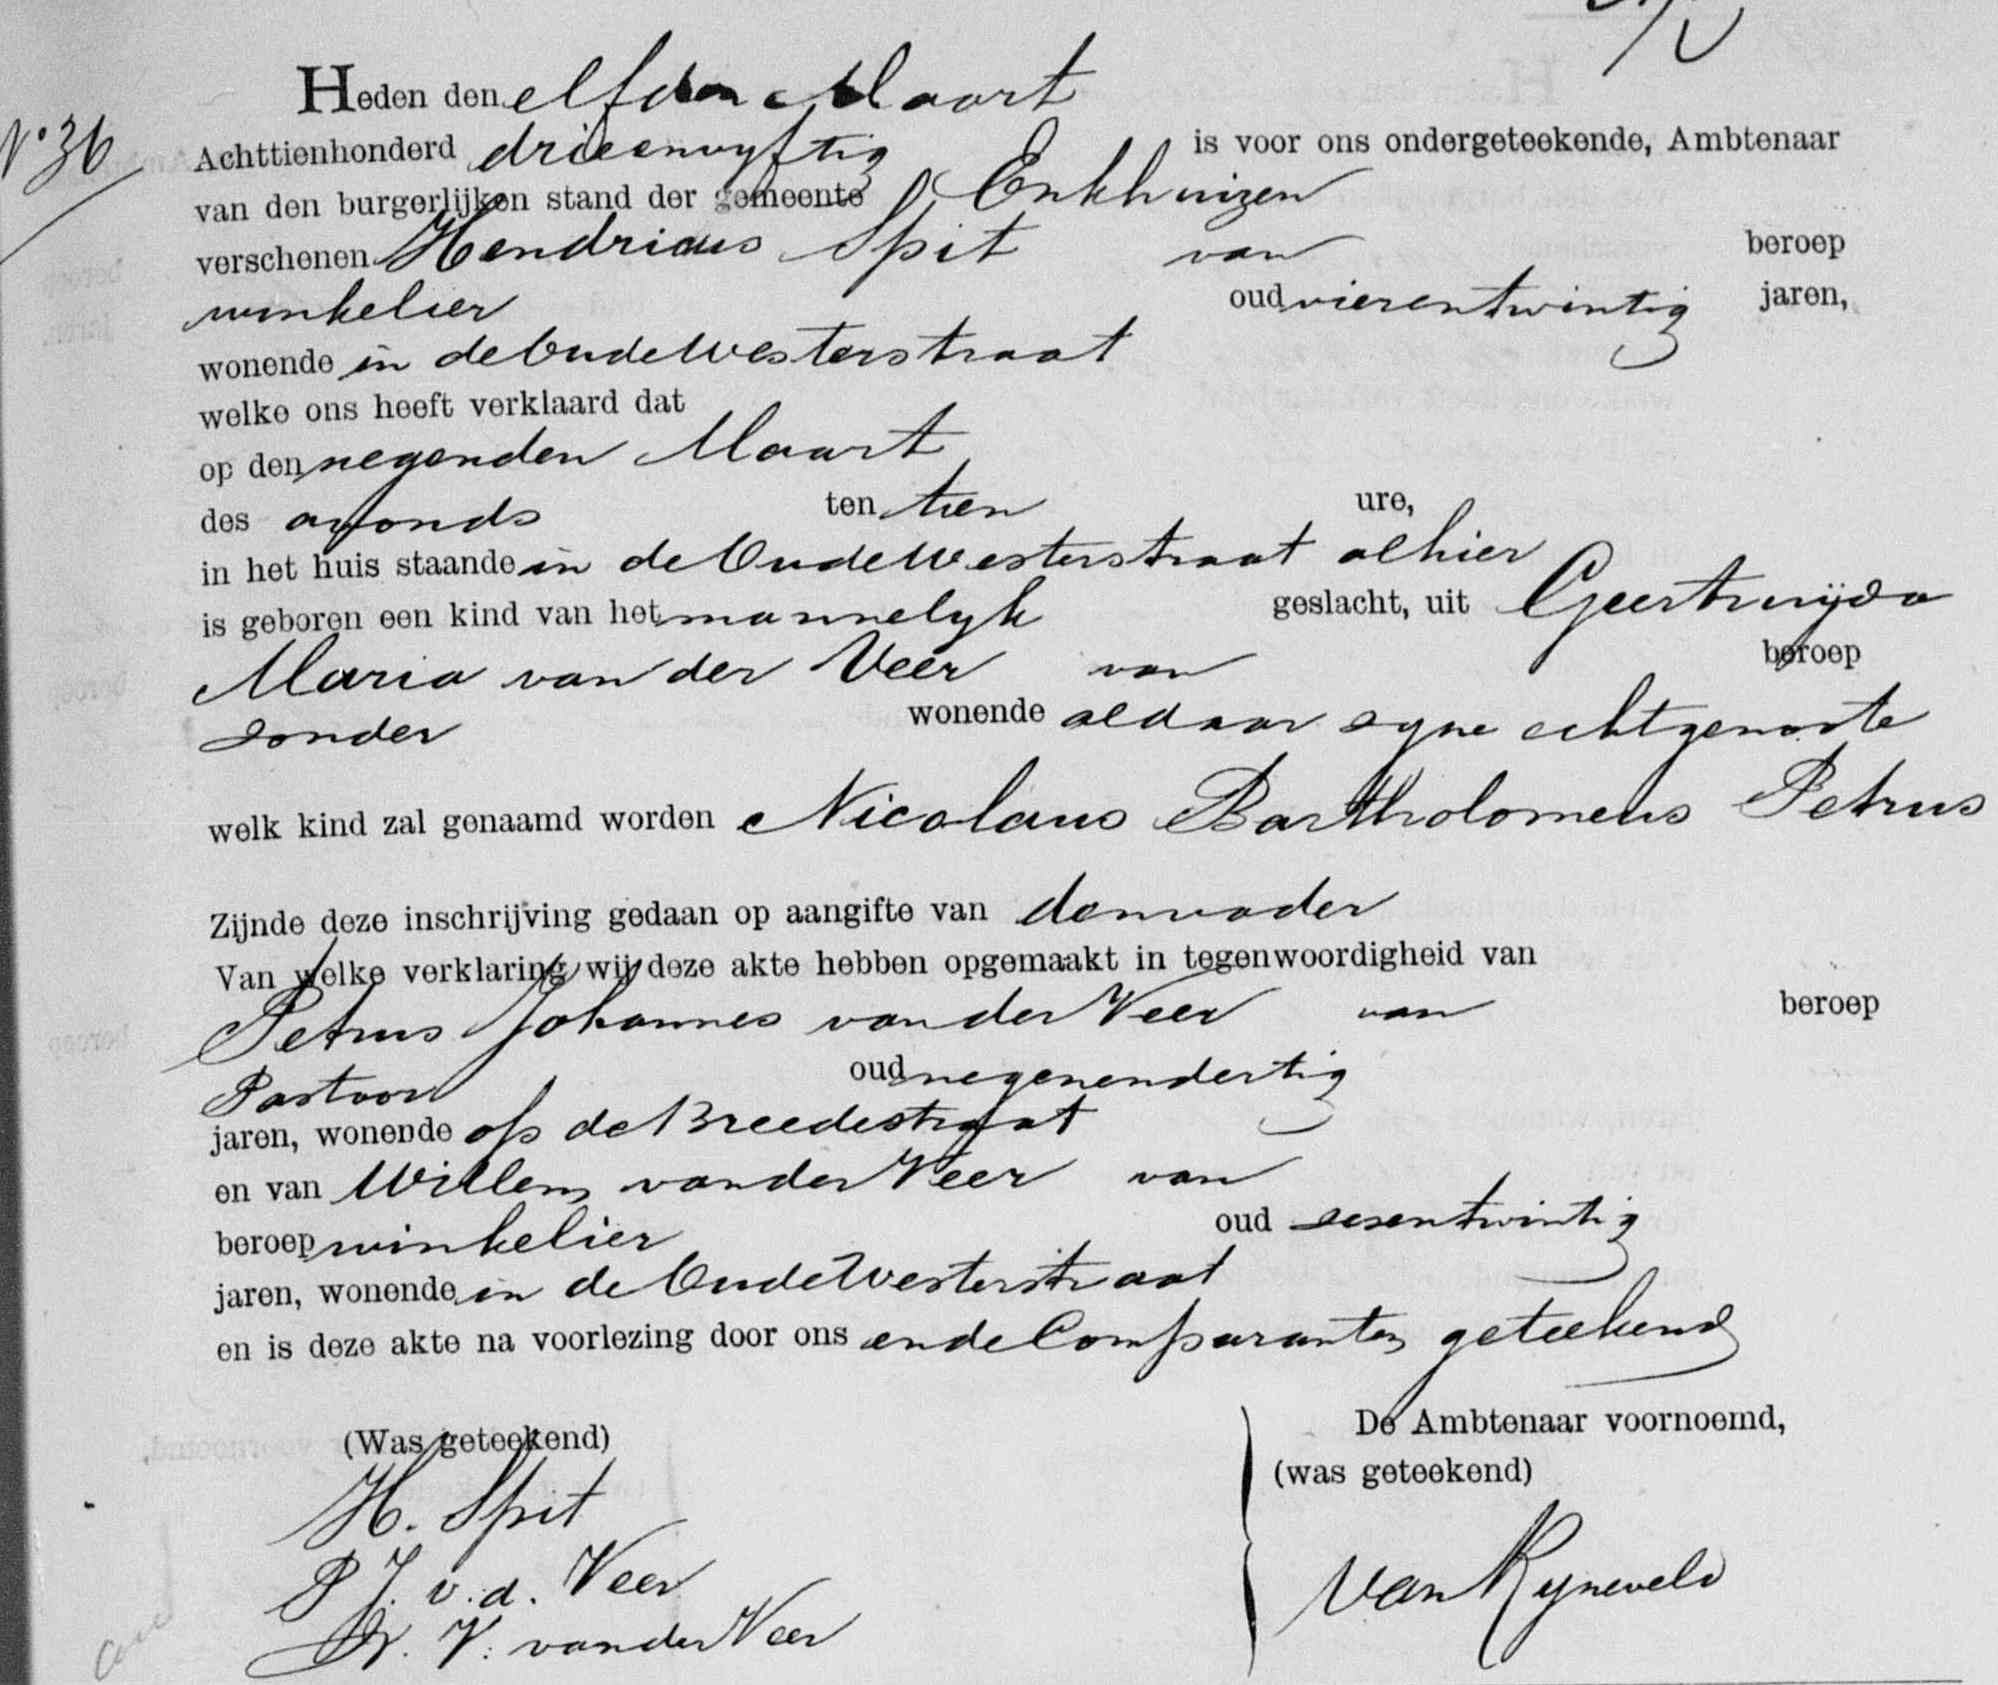 N° 36
Heden den elfden Maart
Achttienhonderd drieenvyftig is voor ons ondergeteekende, Ambtenaar
van den burgerlijken stand der gemeente Enkhuizen
verschenen Hendricus Spit van beroep
winkelier oud vierentwintig jaren,
wonende in de Oude Westerstraat
welke ons heeft verklaard dat
op den negenden Maart
des avonds ten tien ure,
in het huis staande in de Oude Westerstraat alhier
is geboren een kind van het mannelyk geslacht, uit Geertruijda
Maria van der Veer van beroep
zonder wonende aldaar zyne echtgenoote
welk kind zal genaamd worden Nicolaus Bartholomeus Petrus
Zijnde deze inschrijving gedaan op aangifte van den vader
Van welke verklaring wij deze akte hebben opgemaakt in tegenwoordigheid van
Petrus Johannes van der Veer van beroep
Pastoor oud negenendertig
jaren, wonende op de Breedestraat
en van Willem van der Veer van
beroep winkelier oud zesentwintig
jaren, wonende in de Oude Westerstraat
en is deze akte na voorlezing door ons en de Comparanten geteekend
(Was geteekend)
H. Spit
P J. v. d. Veer
V: van der Veer
De Ambtenaar voornoemd,
(was geteekend)
van Ryneveld